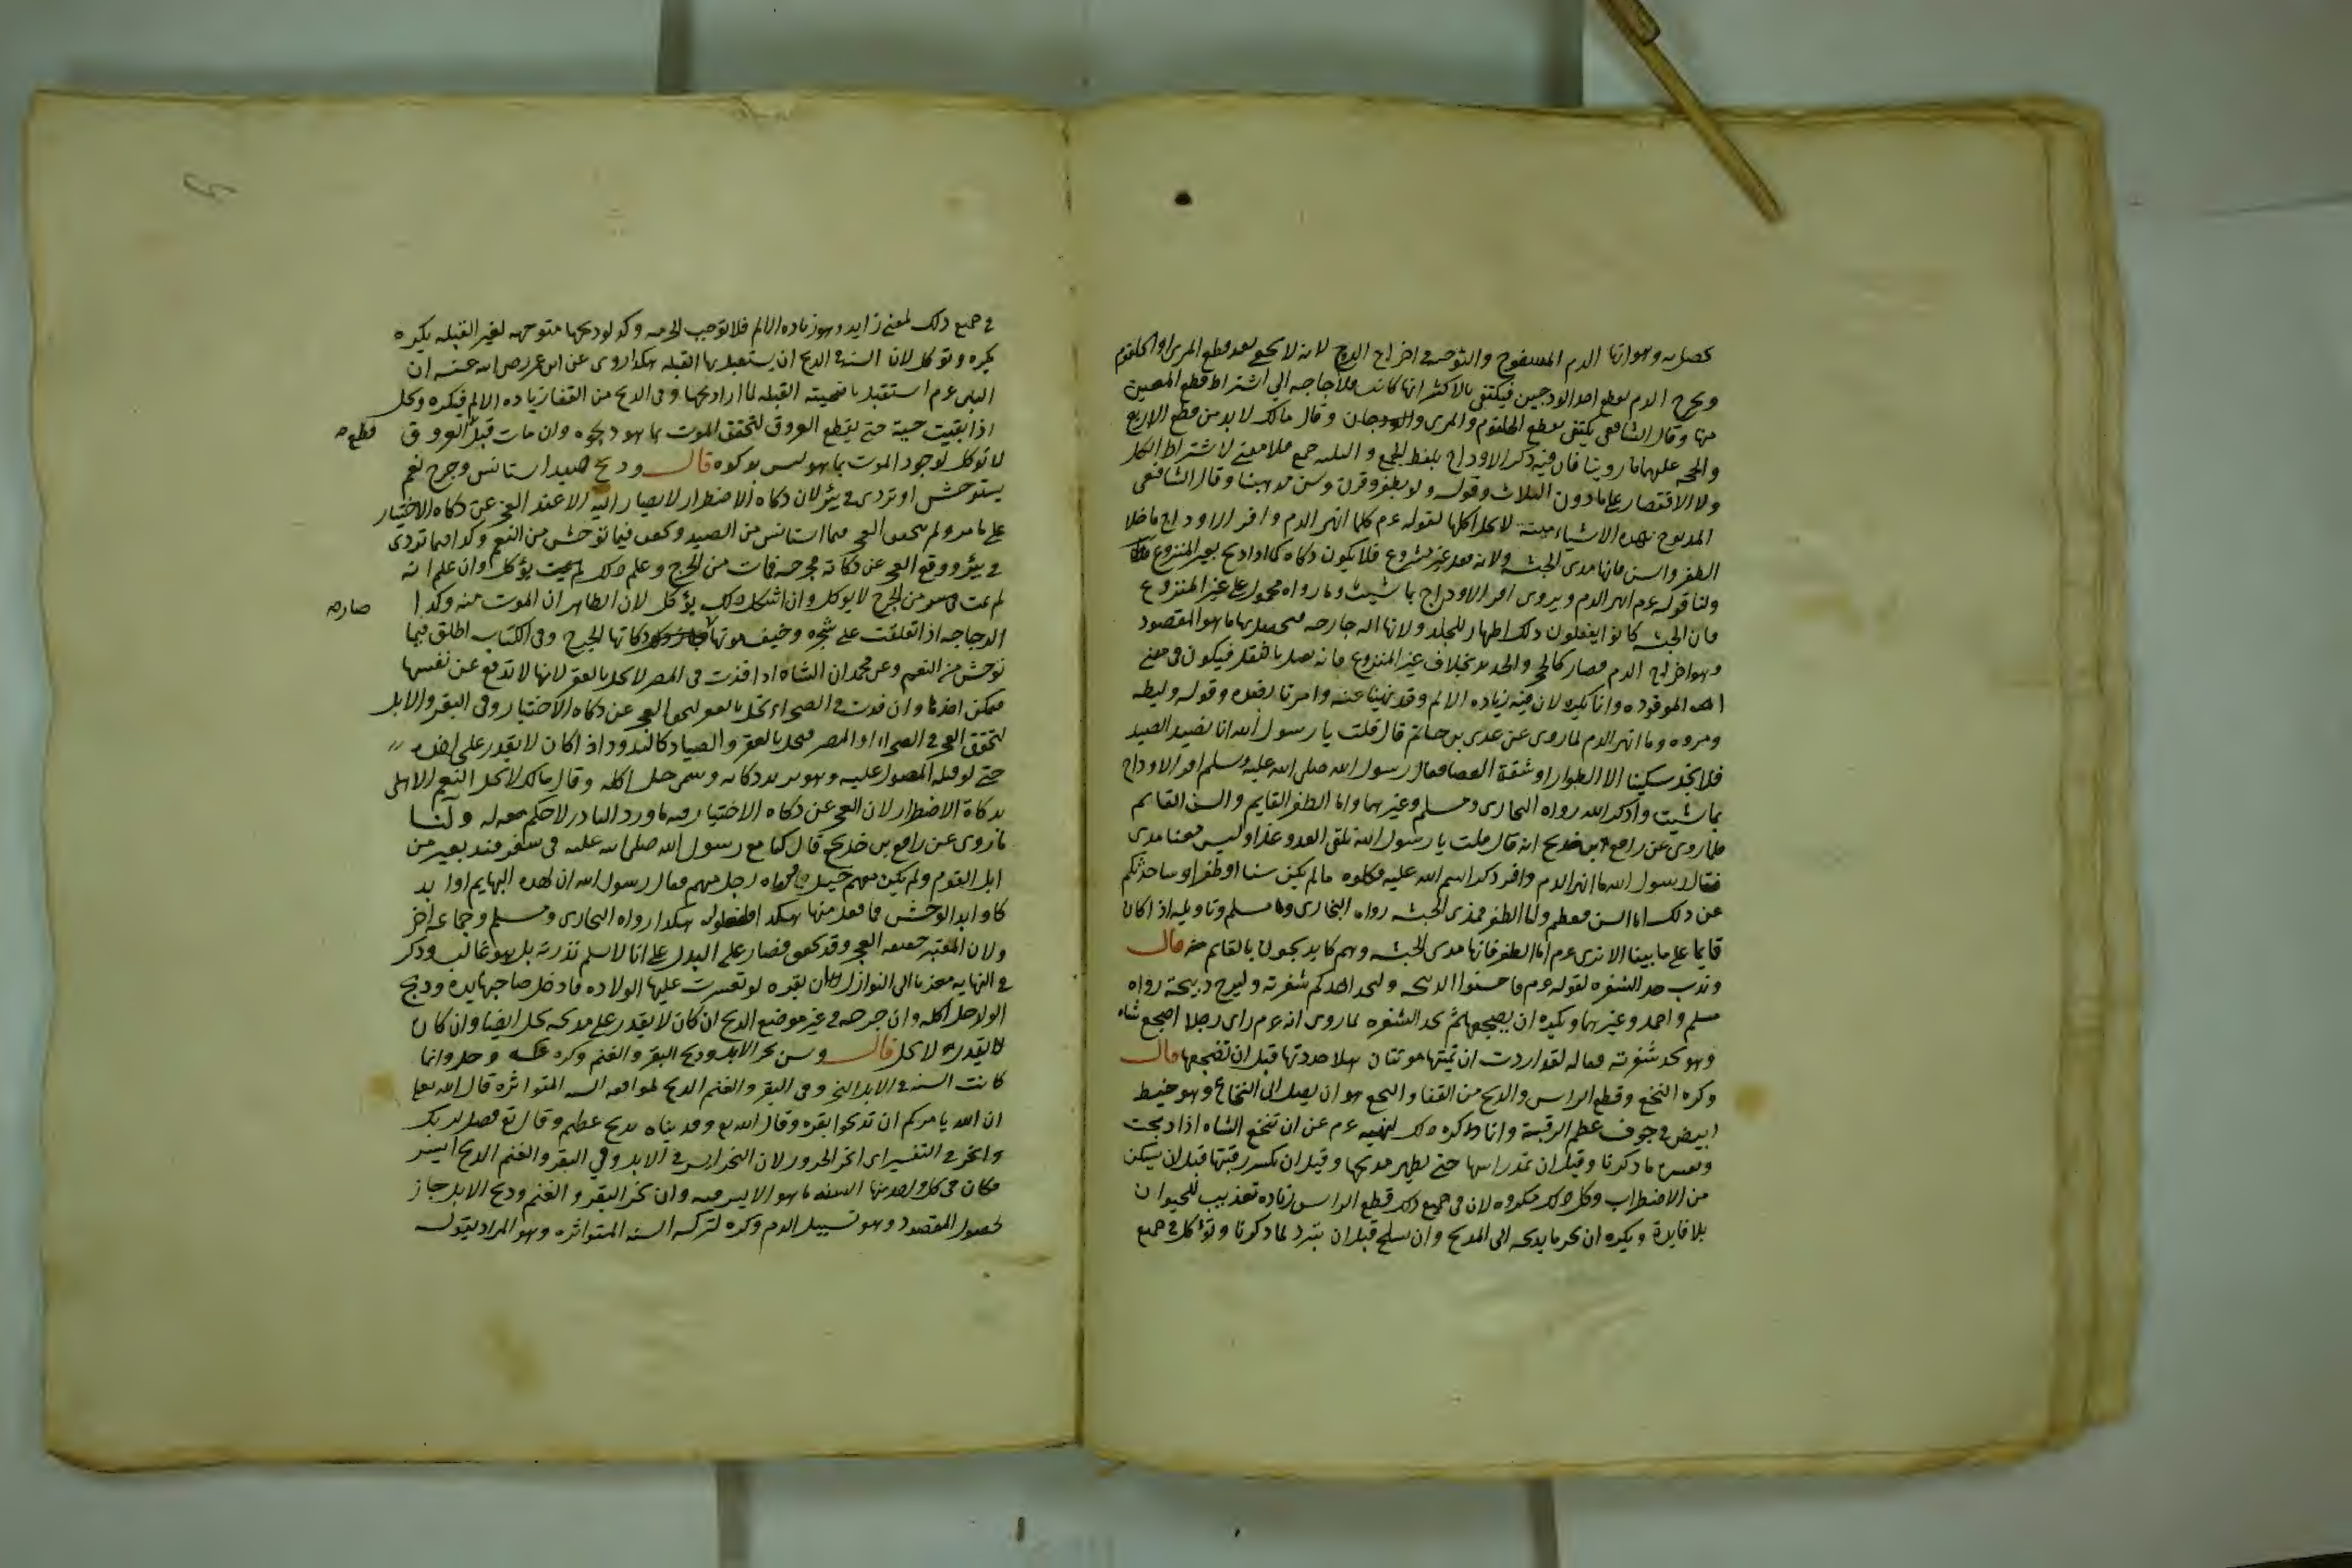 يحصل به وهو انهار الدم المسفوح والتوحية في اخراج الروح لانه لا يحيي بعد قطع المرى او الحلقوم
ويخرج الدم بقطع احد الودجين فيكتفى بالاكثر ايها كانت فلا حاجة الى اشتراط قطع المعين
منها وقال الشافعى يكتفى بقطع الحلقوم والمرى والودجان وقال مالك لا بد من قطع الاربع
والحجة عليهما ما روينا فان فيه ذكر الاوداج بلفظ الجمع و جمع فلا معنى لاشتراط الكل
ولا الاقتصار على ما دون الثلاث وقوله ولو بظفر وقرن وسن مذهبنا وقال الشافعى
المذبوح بهذه الاشياء ميتة لا يحل اكلها لقوله عم كلما انهر الدم وافرى الاوداج ما خلا
الظفر والسن فانها مدى الحبشة ولانه فعل غير مشروع فلا يكون ذكاة كما اذا ذبح بغير المنزوع
ولنا قوله عم انهر الدم ويروى افر الاوداج بما شيت وما رواه محمول على غير المنزوع
فان الحبشة كانوا يفعلون ذلك اظهار للجلد ولانها اله جارحه فيحصل بها ما هو المقصود
وهو اخراج الدم فصار كالحجر والحديد بخلاف غير المنزوع فانه يقتل بالثقل فيكون فى معنى
الموقوذه وانما يكره لان فيه زيادة الالم وقد نهينا عنه وامرنا بضده وقوله وليطه
ومروه وما انهر الدم لما روى عن عدى بن حاتم قال قلت يا رسول الله انا نصيد الصيد
فلا نجد سكينا الا الظرار وشقة العصا فقال رسول الله صلى الله عليه وسلم امر الاوداج
بما شيت واذكر الله رواه البخارى ومسلم وغيرهما واما الظفر القايم والسن القايم
فلما روى عن رافع بن خديج انه قال قلت يا رسول الله نلقى العدو غدا وليس معنا مدى
فقال رسول الله ما انهر الدم وافر ذكر اسم الله عليه فكلوه ما لم يكن سنا او ظفرا وساحدثكم
عن ذلك اما السن فعظم واما الظفر فمدى الحبشة رواه البخارى ومسلم وتاويله اذا كان
قايما على ما بينا الا ترى عم اما الظفر فانها مدى الحبشة وهم كانوا يذبحون بالقايم قال
وندب حد الشفره لقوله عم فاحسنوا الذبحه وليحد احدكم شفرته وليرح ذبيحته رواه
مسلم واحمد وغيرهما ويكره ان يضجعها ثم يحد الشفره لما روى انه عم راى رجلا اضجع شاه
وهو يحد شفرته فقال لقد اردت ان تميتها موتتان هلا حددتها قبل ان تضجعها قال
وكره النخع وقطع الراس والذبح من القفا والنخع هو ان يصل الى النخاع وهو خيط
ابيض فى جوف عظم الرقبة وانما كره ذلك لنهيه عم عن ان تنخع الشاه اذا ذبحت
وتفسيره ما ذكرنا وقيل ان تمد راسها حتى يظهر مذبحها وقيل ان تكسر رقبتها قبل ان تسكن
من الاضطراب وكل ذلك مكروه لان فى جميع ذلك وقطع الراس زيادة تعذيب للحيوان
بلا فايدة ويكره ان يجر ما يذبحه الى المذبح وان تسلخ قبل ان تبرد لما ذكرنا وتؤكل فى جميع
فى جميع ذلك لمعنى زايد وهو زياده الالم فلا توجب الحرمه وكذا لو ذبحها متوجهه لغير القبله يكره
يكره وتوكل لان السنة فى الذبح ان يستقبل بها القبله هكذا روى عن ابن عمر رضى الله عنه ان
النبى عم استقبل باضحيته القبله لما اراد ذبحها وفى الذبح من القفا زياده الالم فيكره وتحل
اذا بقيت حية حتى يقطع العروق لتحقق الموت بما هو ذكوه وان مات قبل العروق
قطع صح
لا توكل لوجود الموت بما هو ليس بذكوه قال وذبح صيد استانس وجرح نعم
يستوحش او تردى فى بئر لان ذكاة الاضطرار لا يصار اليه الا عند العجز عن ذكاة الاختيار
على ما مر ولم يتحقق العجز فيما استانس من الصيد وتحقق فيما توحش من النعم وكذا فيما تردى
فى بئر ووقع العجز عن ذكاته فجرحه فمات من الجرح وعلم ذلك لم يمت يؤكل وان علم انه
لم يمت من الجرح لا يوكل وان اشكل ذلك يؤكل لان الظاهر ان الموت منه وكذا
الدجاجه اذا تعلقت على شجره وخيف موتها ذكاتها الجرح وفى الكتاب اطلق فيما
صار صح
توحش من النعم وعن محمد ان الشاه اذا ندت فى المصر لا تحل بالعقر لانها لا تدفع عن نفسها
فيمكن اخذها وان ندت فى الصحراء تحل بالعقر لتحقق العجز عن ذكاه الاختيار وفى البقر والابل
لتحقق العجز فى الصحراء او المصر فيحل بالعقر والصيال كالند ود اذا كان لا يقدر على اخذه
حتى لو قتله المصول عليه وهو يريد ذكاته وسمى حل اكله وقال مالك لا يحل النعم الاهلى
بذكاة الاضطرار لان العجز عن ذكاه الاختيار فيه نادر والنادر لا حكم له ولنا
ما روى عن رافع بن خديج قال كنا مع رسول الله صلى الله عليه فى سفر فند بعير من
ابل القوم ولم يكن معهم خيل فرماه رجل منهم فقال رسول الله ان لهذه البهايم اوابد
كاوابد الوحش فما فعل منها هكذا فافعلوا به هكذا رواه البخارى ومسلم وجماعة اخر
ولان المعتبر حقيقه العجز وقد تحقق فصار على البدل على انا لا نسلم ندرته بل هو غالب وذكر
فى النهايه معزيا الى النوازل ان بقره لو تعسرت عليها الولاده فادخل صاحبها يده وذبح
الولد حل اكله وان جرحه فى غير موضع الذبح ان كان لا يقدر على مذبحه يحل ايضا وان كان
لا يقدر لا يحل قال وسن نحر الابل وذبح البقر والغنم وكره عكسه وحل وانما
كانت السنه فى الابل النحر وفى البقر والغنم الذبح لموافقه السنه المتواثره قال الله تعا
ان الله يامركم ان تذبحوا بقره وقال الله تع وفديناه بذبح عظيم وقال تع فصل لربك
وانحر فى التفسير اى انحر الجزور لان النحر ايسر فى الابل وفى البقر والغنم الذبح ايسر
فكان فى كل واحد منها السنه ما هو الايسر فيه وان نحر البقر والغنم وذبح الابل جاز
لحصول المقصود وهو تسييل الدم وكره لتركه السنه المتواثره وهو المراد بقوله